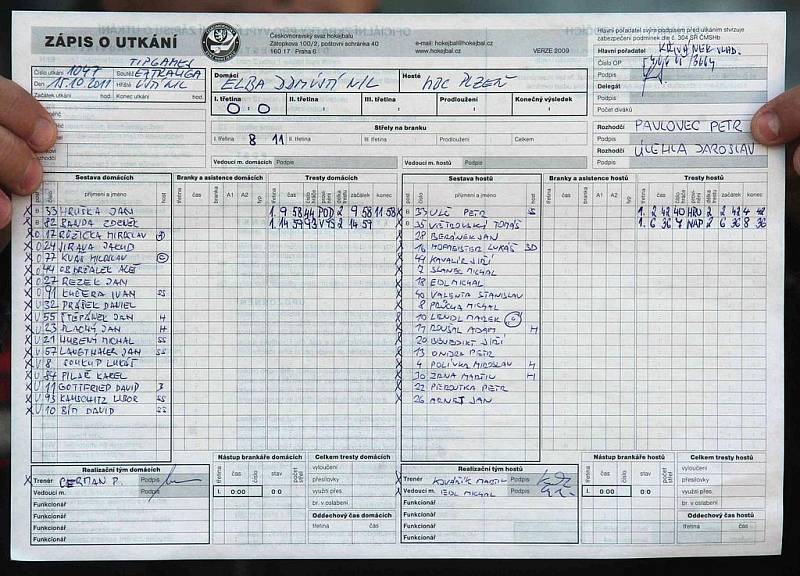 ZÁPIS O UTKÁNÍ
Českomoravský svaz hokejbalu
Zátopkova 100/2, poštovní schránka 40
160 17 / Praha 6
e-mail: hokejbal@hokejbal.cz
www.hokejbal.cz
VERZE 2009
Hlavní pořadatel svým podpisem před utkáním stvrzuje
zabezpečení podmínek dle č. 304 SŘ ČMSHb
Hlavní pořadatel
Číslo OP
Podpis
Delegát
Podpis
Počet diváků
Rozhodčí PAVLOVEC PETR
Podpis
Rozhodčí ÚLEHLA JAROSLAV
Podpis
TIPGAMES
Číslo utkání 1047 Soutěž EXTRALIGA
Den 15.10.2011 Hřiště ÚSTÍ N/L
Začátek utkání hod. Konec utkání hod.
Domácí ELBA DDM ÚSTÍ N/L
Hosté HBC PLZEŇ
I. třetina 0 : 0 II. třetina III. třetina Prodloužení Konečný výsledek
Střely na branku
I. třetina 8 11 II. třetina III. třetina Prodloužení Celkem
Vedoucí m. domácích Podpis Vedoucí m. hostů Podpis
Sestava domácích Branky a asistence domácích Tresty domácích
post číslo příjmení a jméno host třetina čas číslo A1 A2 typ
B 33 HRUŠKA JAN 1. 9 58 44 POD 2 9 58 11 58
B 82 BANDA ZDENĚK 1. 14 59 93 VYS 2 14 59
O 17 RŮŽIČKA MIROSLAV A
O 24 JIRAVA JAKUB
O 77 KUBÁT MILOSLAV C
44 OBDRŽÁLEK ALEŠ
O 27 REZEK JAN
O 91 KUČERA IVAN SS
U 32 PRÁŠEK DANIEL
U 55 ŠTĚPÁNEK JAN H
U 23 PLACHÝ JAN H
U 21 HUBENÝ MICHAL SS
U 57 LANGTHALER JAN SS
U 8 SOUKUP LUKÁŠ
U 84 PILAŘ KAREL
U 11 GOTTFRIED DAVID
U 93 LUBOR SS
U 10 BÍM DAVID SS
Sestava hostů Branky a asistence hostů Tresty hostů
post číslo příjmení a jméno host třetina čas číslo A1 A2 typ
B 33 PETR 1. 2 42 40 HRU 2 2 42 4 42
B 35 TOMÁŠ 1. 6 36 7 NAP 2 6 36 8 36
28 BERÁNEK JAN
16 HOFMEISTER LUKÁŠ
44 KAVALÍR JIŘÍ
7 MICHAL
18 EDL MICHAL
40 VALENTA STANISLAV
8 PRŮCHA MICHAL
10 LENDL MAREK C
17 ADAM H
20 BENEDIKT JIŘÍ
13 ONDRA PETR
4 POLÍVKA MIROSLAV H
30 ZRNA MARTIN H
22 PIEROUTKA PETR
26 JAN
Realizační tým domácích
Trenér BERMAN P. Podpis
Vedoucí m. Podpis
Funkcionář
Funkcionář
Funkcionář
Funkcionář
Nástup brankáře domácích
třetina čas číslo stav počet střel
I. 0:00 0:0
Celkem tresty domácích
vyloučení
přesilovky
využití přes.
br. v oslabení
Oddechový čas domácích
třetina čas
Realizační tým hostů
Trenér KOVÁŘÍK MARTIN Podpis
Vedoucí m. EDL MICHAL Podpis
Funkcionář
Funkcionář
Funkcionář
Funkcionář
Nástup brankáře hostů
třetina čas číslo stav počet střel
I. 0:00 0:0
Celkem tresty hostů
vyloučení
přesilovky
využití přes.
br. v oslabení
Oddechový čas hostů
třetina čas